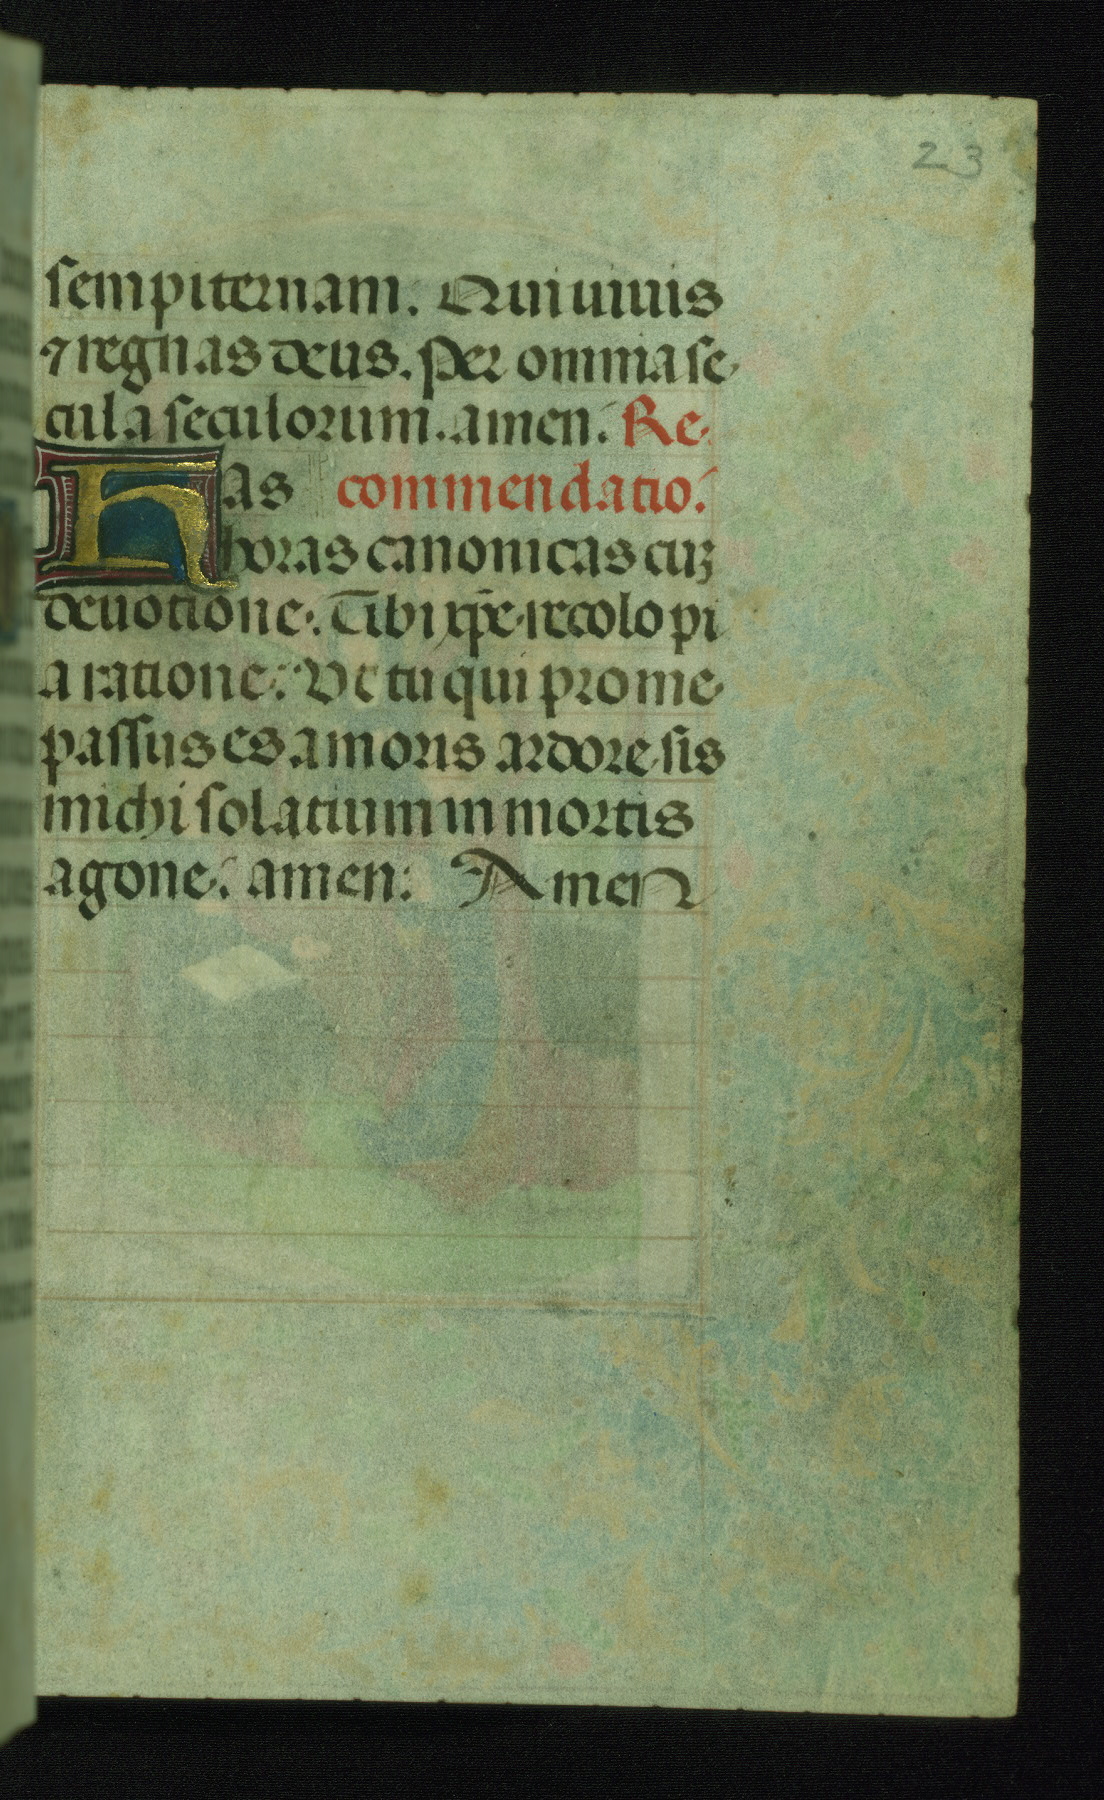 23
sempiternam. Qui uiuis
⁊ regnas deus. Per omnia se
cula seculorum. amen. Re
has commendatio.
horas canonicas cuꝫ
deuotione. Tibi xp̄e recolo pi
a ratione. Vt tu qui pro me
passus es amoris ardore sis
michi solatium in mortis
agone. amen: Amen